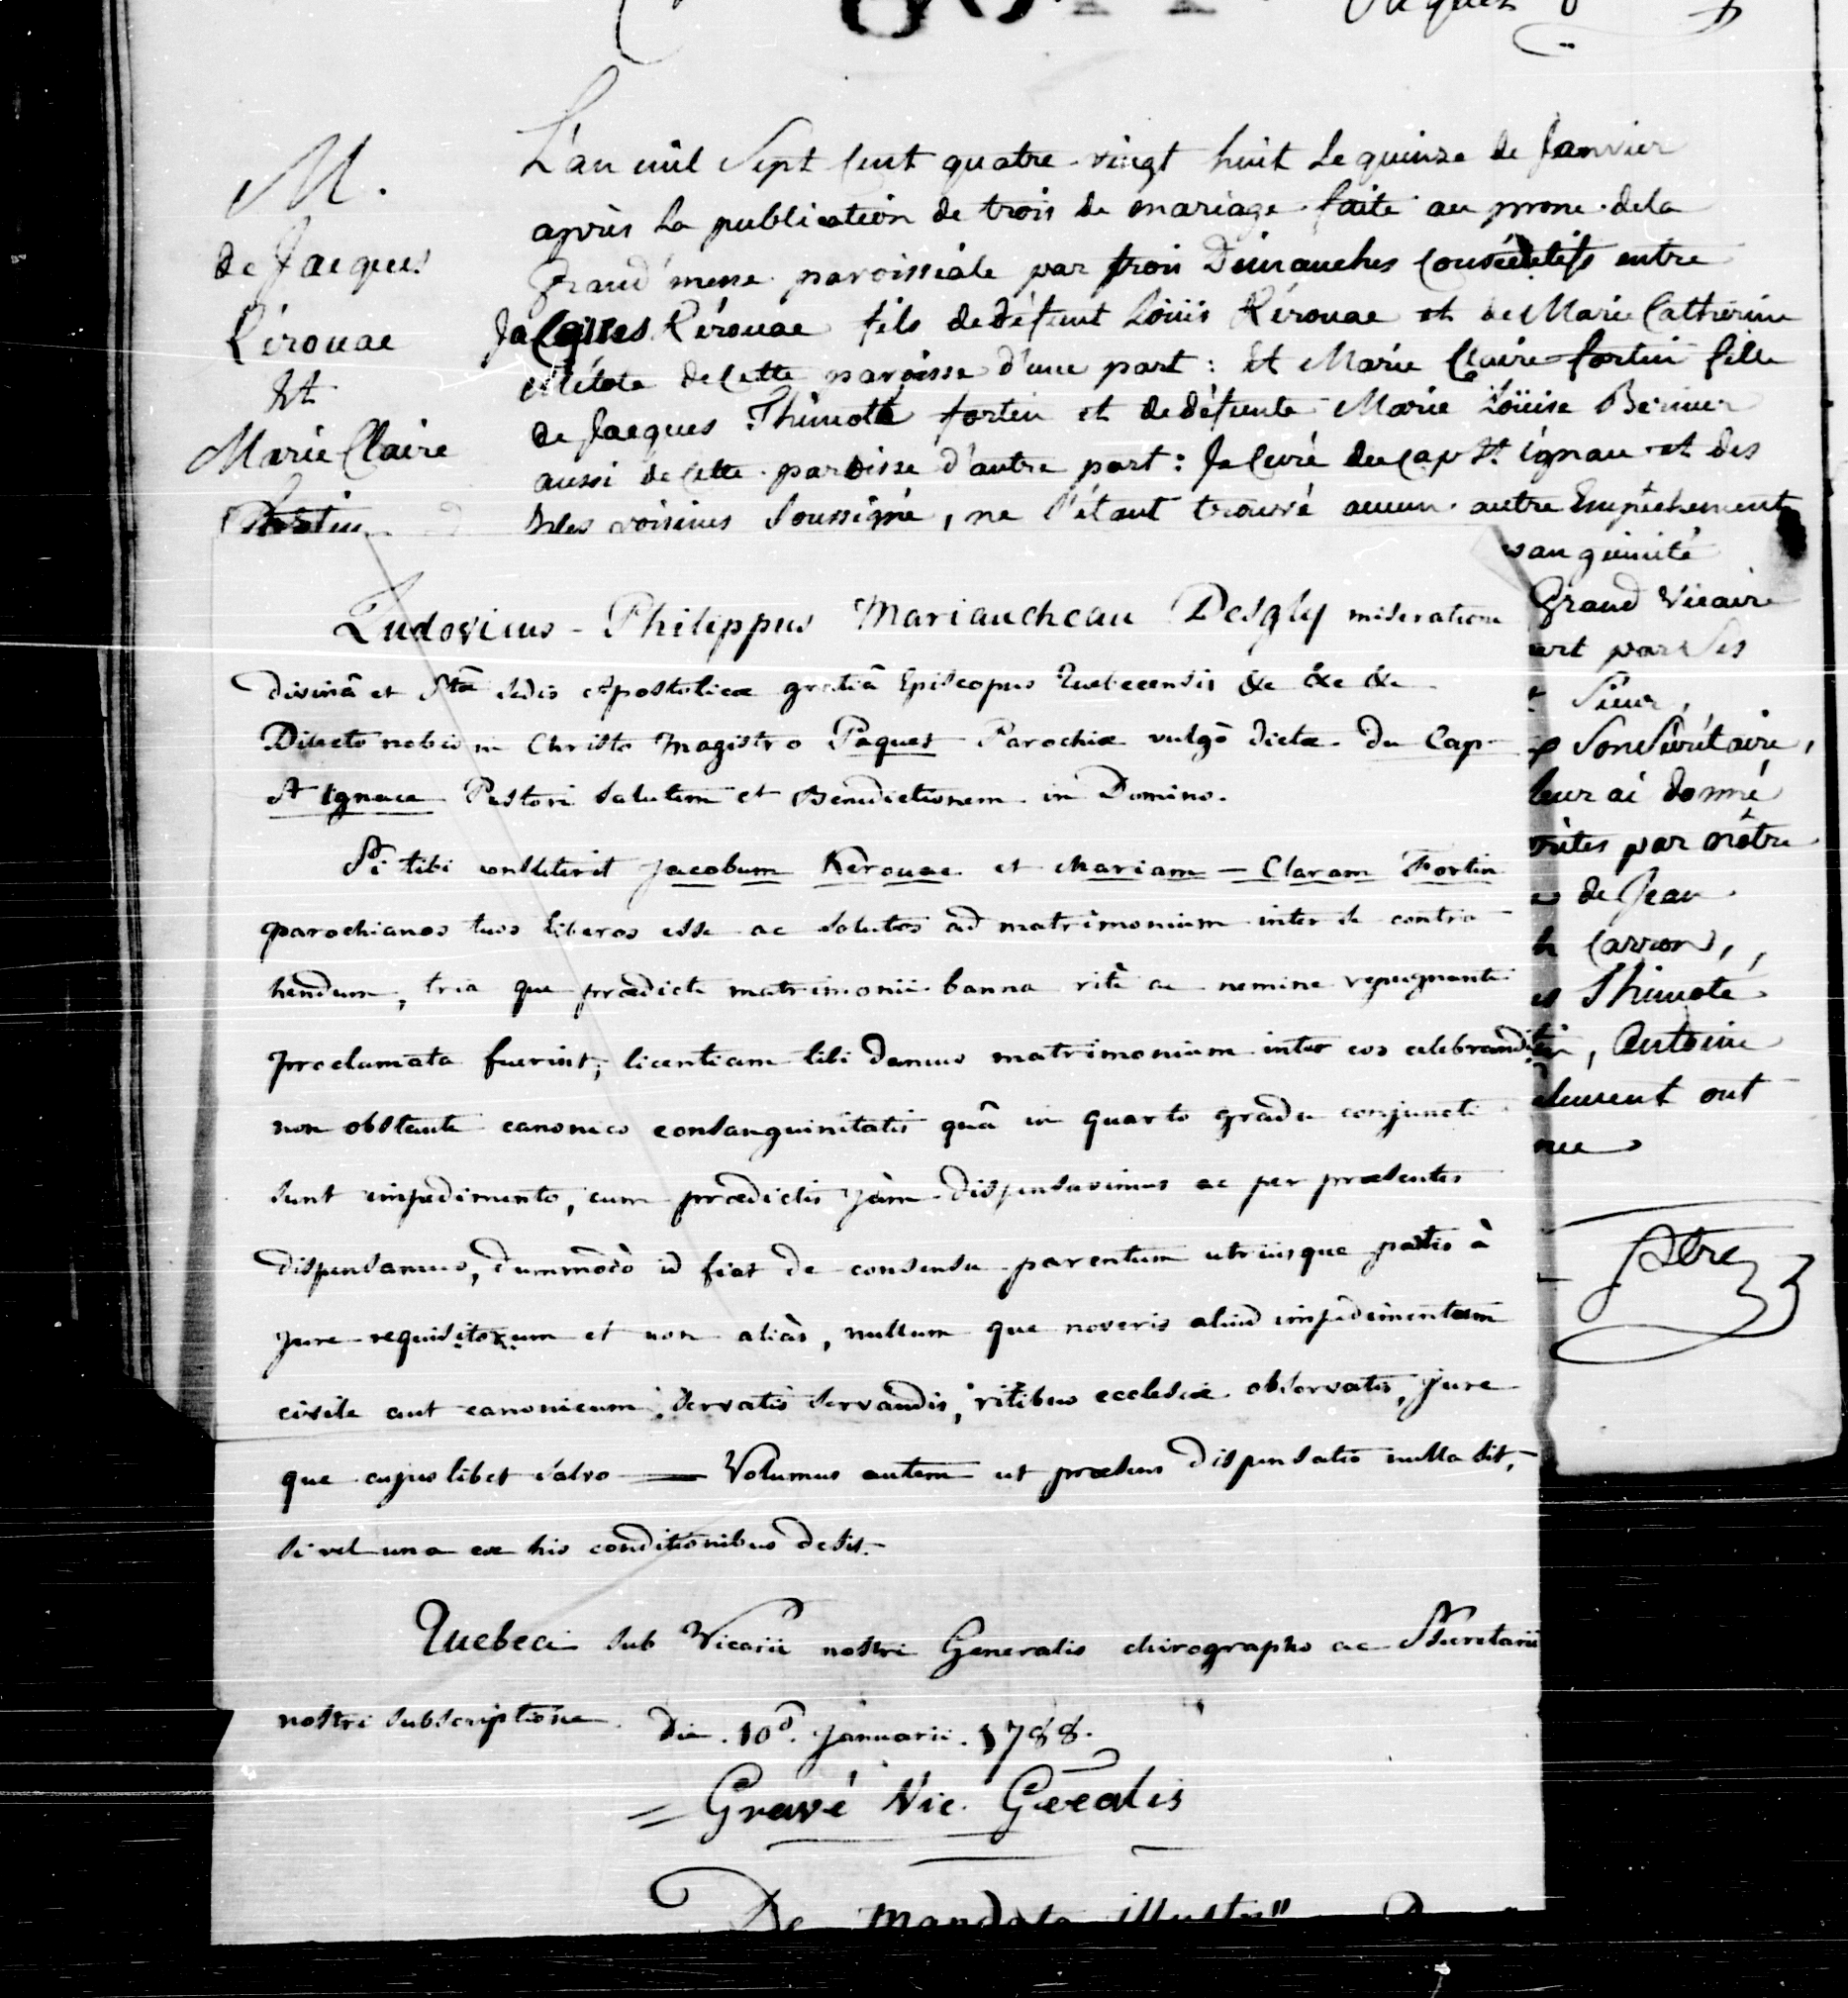 M.
de Jacques
Kérouac
Et
Marie Claire
Fortin
L'an mil Sept Cent quatre-vingt huit Le quinze de Janvier
après La publication de trois de mariage faite au prone de la
Grand'messe paroissiale par trois Dimanches Consécutifs entre
Jacques Kérouac fils de défunt Loüis Kérouac et de Marie Catherine
Métote de Cette paroisse d'une part : Et Marie Claire fortin fille
de Jacques Thimoté fortin et de défunte Marie Loüise Bernier
aussi de Cette paroisse d'autre part : Je Curé du Cap St. Ignace et des
Isles voisines Soussigné, ne S'étant trouvé aucun autre Empêchement
sanguinité
Grand Vicaire
ert par Ses
Sieur,
Son Sécrétaire,
leur ai donné
rites par nôtre
de Jean
Carron,
Thimoté
tin, Antoine
lement ont
nec
Ptre
Ludovicus - Philippus Mariaucheau Desgly miseratione
divinâ et Stæ Sedis Apostolicæ gratiâ Episcopus Quebecensis &c &c &c
Dilecto nobis in Christo Magistro Paquet Parochiæ vulgò dictæ du Cap
St Ignace Pastori Salutem et Benedictionem in Domino.
Si tibi constiterit Jacobum Kerouac et Mariam - Claram Fortin
parochianos tuos liberos esse ac solutos ad matrimonium inter se contra
hendum, tria que prædicti matrimonii banna ritè ac nemine repugnante
proclamata fuerint; licentiam tibi damus matrimonium inter eos celebrandi
non obstante canonico consanguinitatis quâ in quarto gradu conjuncti
sunt impedimento, cum prædictis jàm dispensavimus ac per præsentes
dispensamus, dummodò id fiat de consensu parentum utriusque partis à
jure requisitorum et non aliàs, nullum que noveris aliud impedimentum
civile aut canonicum, Servatis servandis, ritibus ecclesiæ observatis, jure
que cujuslibet salvo — Volumus autem ut præsens dispensatio nulla sit,
si vel una ex his conditionibus desit.
Quebeci sub Vicarii nostri Generalis chirographo ac Secretarii
nostri subscriptione. Die . 10â. Januarii . 1788.
= Gravé Vic. Gēēalis
De Mandato illustris